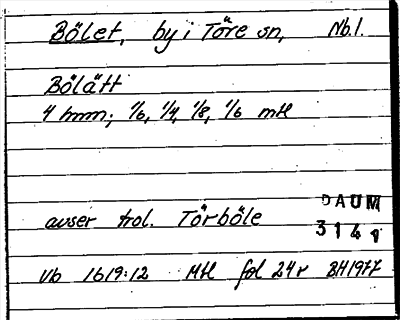 Bölet, by i Töre sn, Nb.l.
Bölätt
4 hmn; 1/6, 1/4, 1/8, 1/6 mtl
DAUM
avser trol. Törböle
3141
Vb 1619:12 Mtl fol 24r BH1977